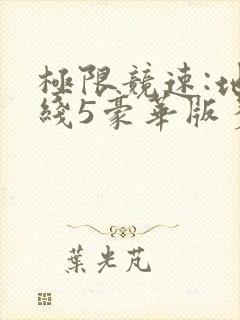 極限競速:地
綫5豪華版
葉光芃